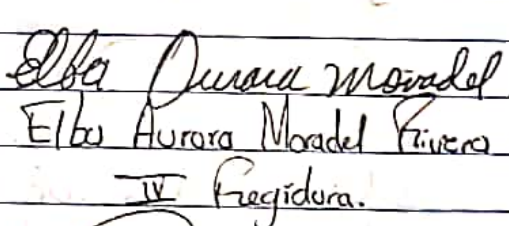 Elba Aurora Moradel
Elba Aurora Moradel Rivera
IV Regidora.